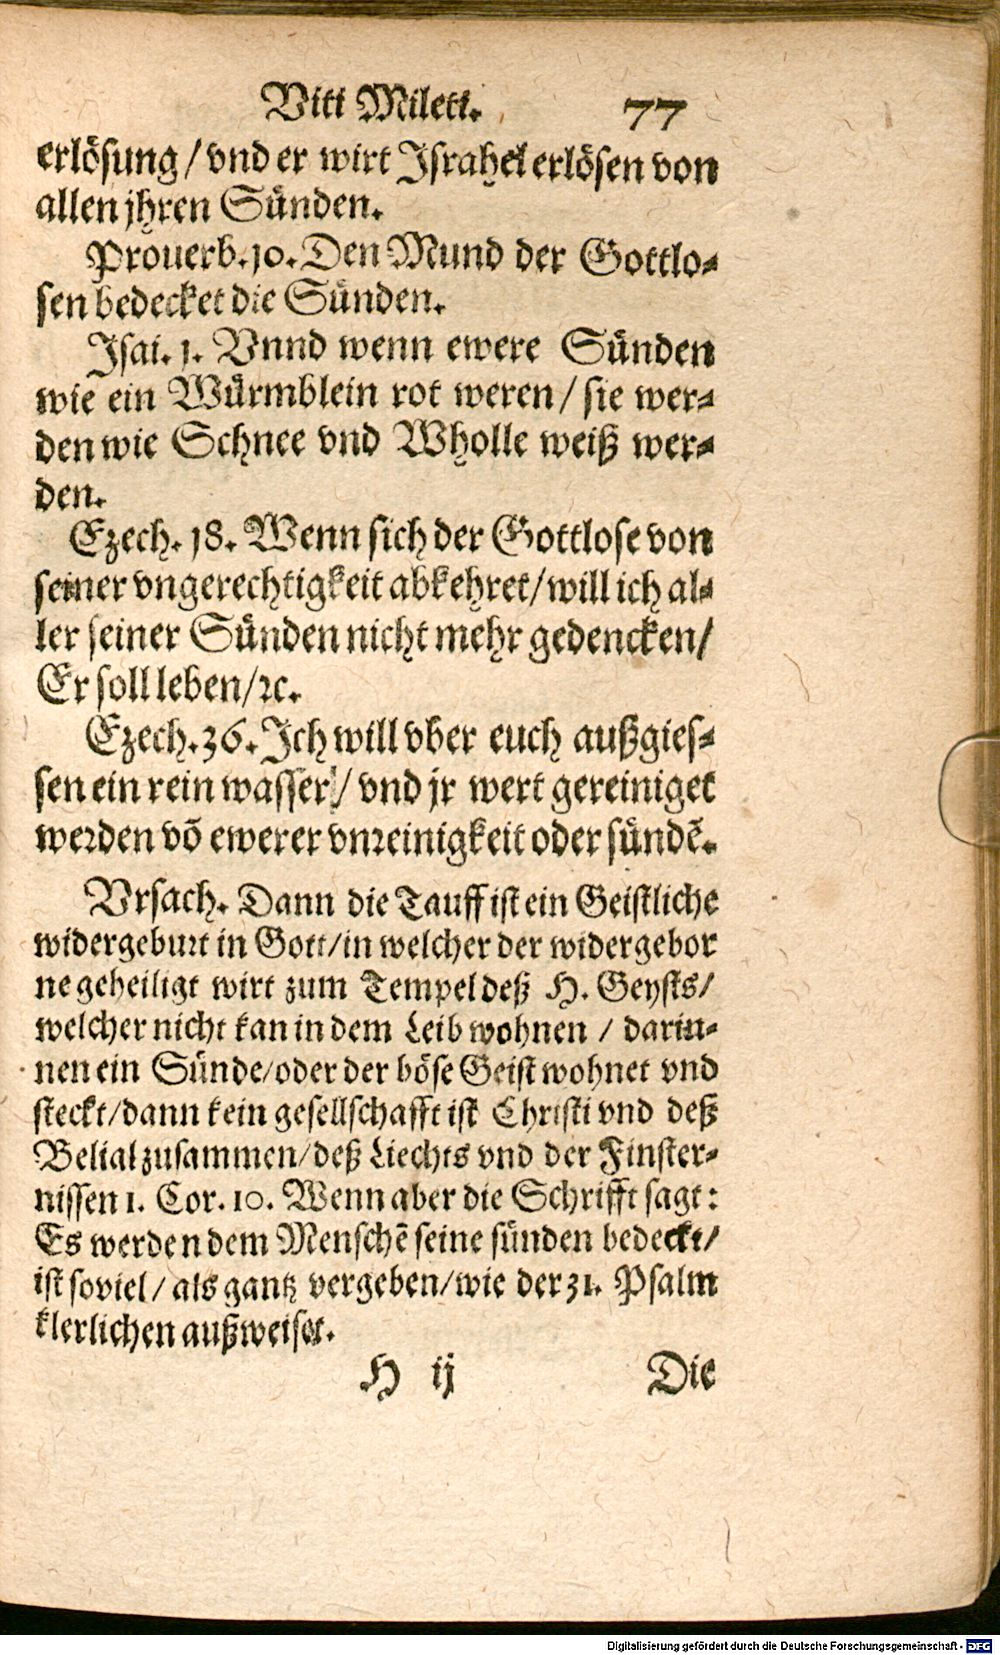 Viti Mileti. 77
erlösung / vnd er wirt Israhel erlösen von
allen jhren Sünden.
Prouerb. 10. Den Mund der Gottlo-
sen bedecket die Sünden.
Isai. 1. Vnnd wenn ewere Sünden
wie ein Würmblein rot weren / sie wer-
den wie Schnee vnd Wholle weiß wer-
den.
Ezech. 18. Wenn sich der Gottlose von
seiner vngerechtigkeit abkehret / will ich al-
ler seiner Sünden nicht mehr gedencken /
Er soll leben / ꝛc.
Ezech. 36. Ich will vber euch außgies-
sen ein rein wasser / vnd jr wert gereiniget
werden võ ewerer vnreinigkeit oder sündẽ.
Vrsach. Dann die Tauff ist ein Geistliche
widergeburt in Gott / in welcher der widergebor
ne geheiligt wirt zum Tempel deß H. Geysts /
welcher nicht kan in dem Leib wohnen / darin-
nen ein Sünde / oder der böse Geist wohnet vnd
steckt / dann kein gesellschafft ist Christi vnd deß
Belial zusammen / deß Liechts vnd der Finster-
nissen 1. Cor. 10. Wenn aber die Schrifft sagt:
Es werden dem Menschẽ seine sünden bedeckt /
ist soviel / als gantz vergeben / wie der 31. Psalm
klerlichen außweiset.
H ij Die
Digitalisierung gefördert durch die Deutsche Forschungsgemeinschaft - DFG